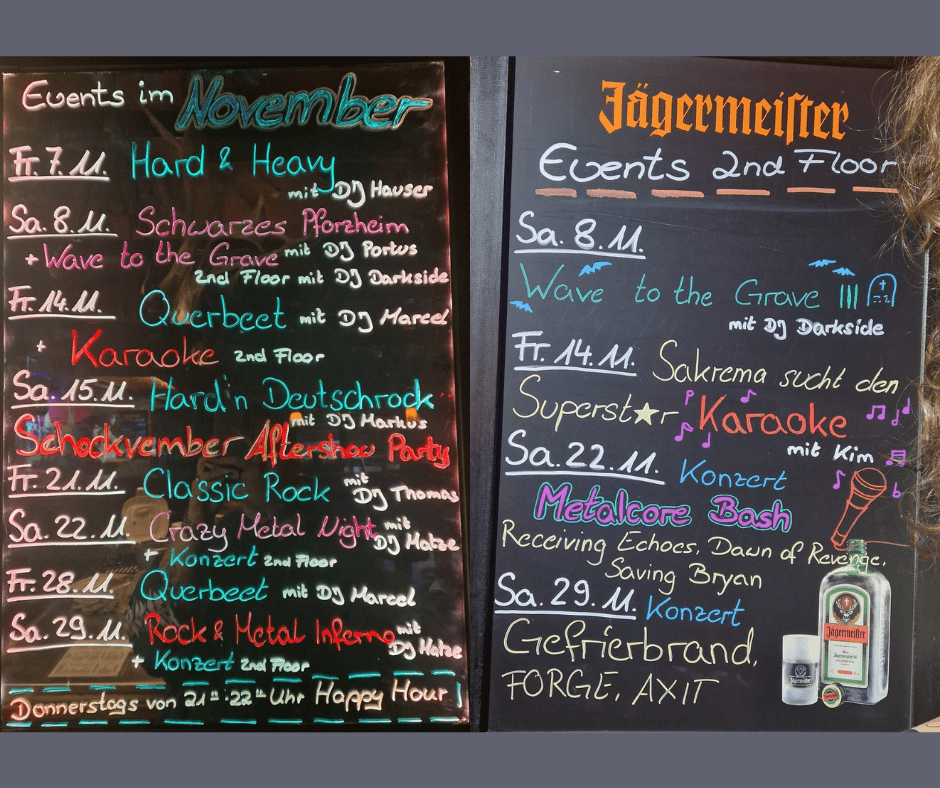 Events im November
Fr. 7.11. Hard & Heavy
mit DJ Hauser
Sa. 8.11. Schwarzes Pforzheim
+ Wave to the Grave mit DJ Portus
2nd Floor mit DJ Darkside
Fr. 14.11. Querbeet mit DJ Marcel
+ Karaoke 2nd Floor
Sa. 15.11. Hard'n Deutschrock
mit DJ Markus
Schockvember Aftershow Party
Fr. 21.11. Classic Rock mit
DJ Thomas
Sa. 22.11. Crazy Metal Night mit
DJ Matze
+ Konzert 2nd Floor
Fr. 28.11. Querbeet mit DJ Marcel
Sa. 29.11. Rock & Metal Inferno mit
DJ Matze
+ Konzert 2nd Floor
Donnerstags von 21°°-22°° Uhr Happy Hour
Jägermeiſter
Events 2nd Floor
Sa. 8.11.
Wave to the Grave III
mit DJ Darkside
Fr. 14.11. Sakrema sucht den
Superst★r Karaoke
mit Kim
Sa. 22.11. Konzert
Metalcore Bash
Receiving Echoes, Dawn of Revenge,
Saving Bryan
Sa. 29.11. Konzert
Gefrierbrand,
FORGE, AXIT
Jägermeiſter
Jägermeiſter